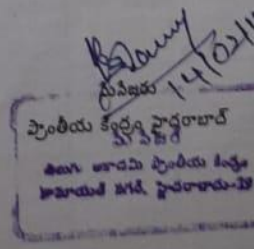 14/02/1
మేనేజరు
ప్రాంతీయ కేంద్రం హైదరాబాద్
మేనేజర్
తెలుగు అకాడమి ప్రాంతీయ కేంద్రం
హిమాయత్ నగర్, హైదరాబాదు-29